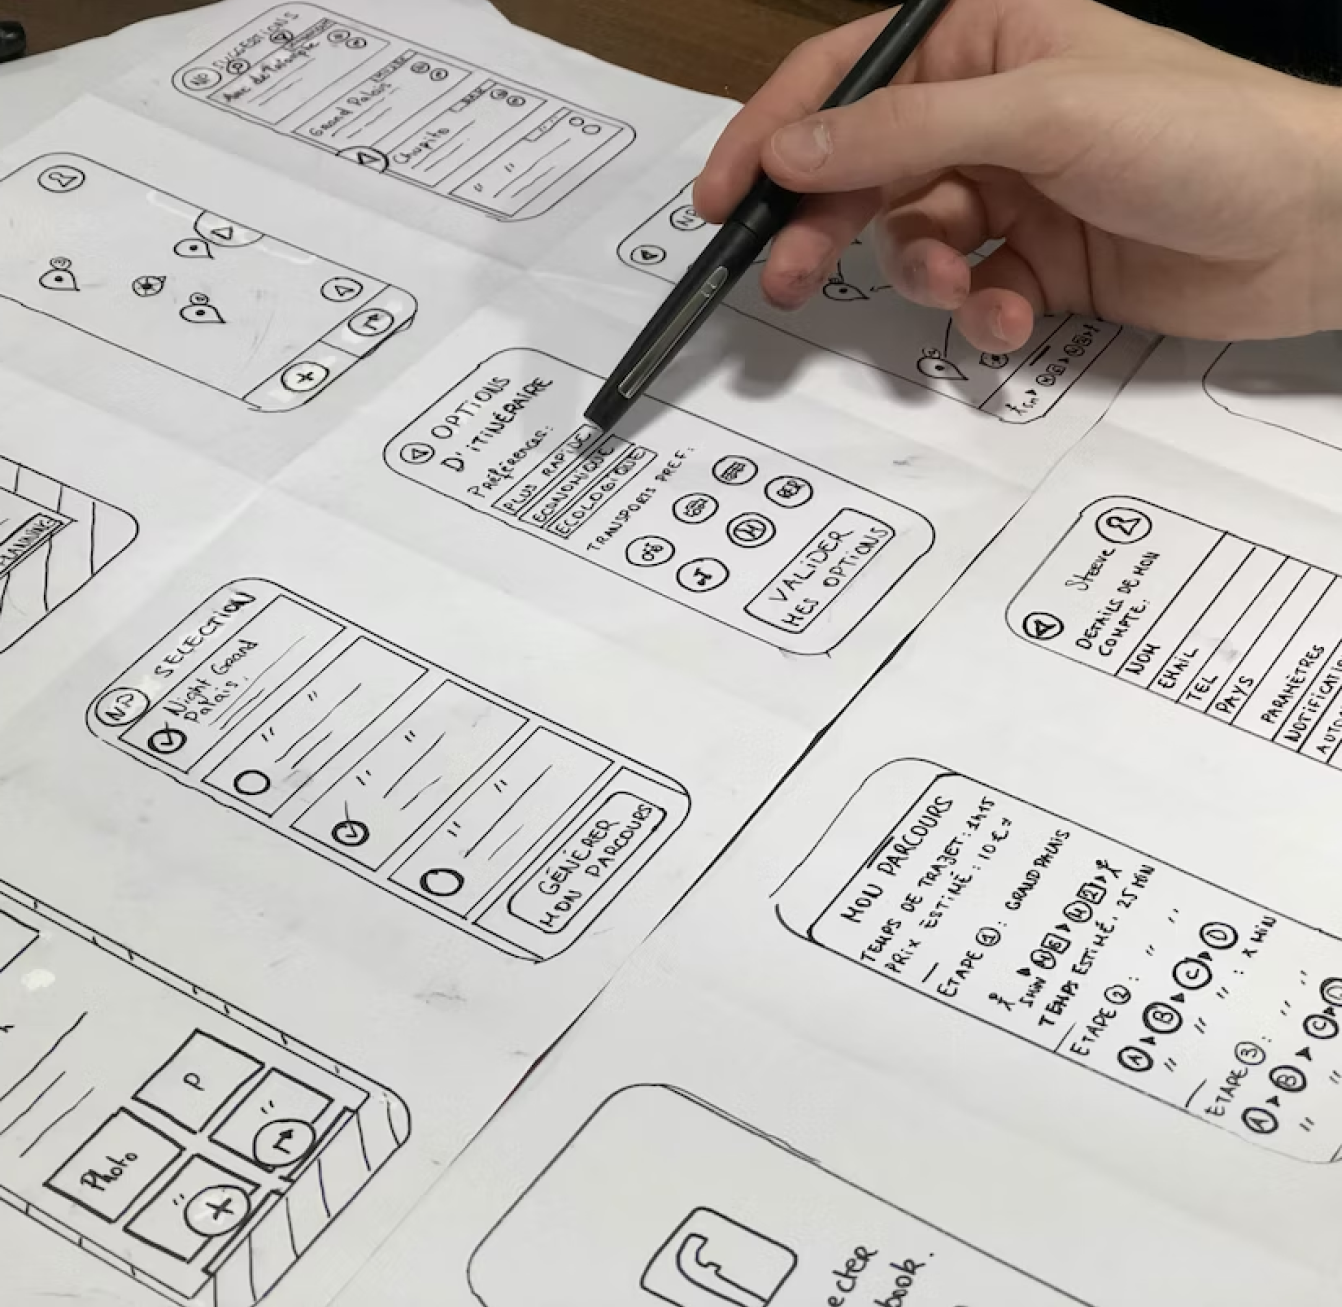 NP SUGGESTIONS
Arc de Triomphe
Grand Palais
MUSÉE
Chupito
BAR
NP
OPTIONS
D'ITINÉRAIRE
Préférences:
PLUS RAPIDE
ECONOMIQUE
ECOLOGIQUE
TRANSPORTS PREF:
RER
M
VALIDER
MES OPTIONS
PLANNING
NP SELECTION
Night Grand
Palais.
GÉNÉRER
MON PARCOURS
Steeve
DETAILS DE MON
COMPTE.
NOM
EMAIL
TEL
PAYS
PARAMÈTRES
NOTIFICATI
AUTO
MON PARCOURS
TEMPS DE TRAJET: 1H15
PRIX ESTIMÉ: 10€
ETAPE 1: GRAND PALAIS
5MIN
TEMPS ESTIMÉ. 25 MIN
ETAPE 2: " "
A B C D
" " : X MIN
ETAPE 3: " "
A B C D
" "
P
Photo
f
ecter
book.